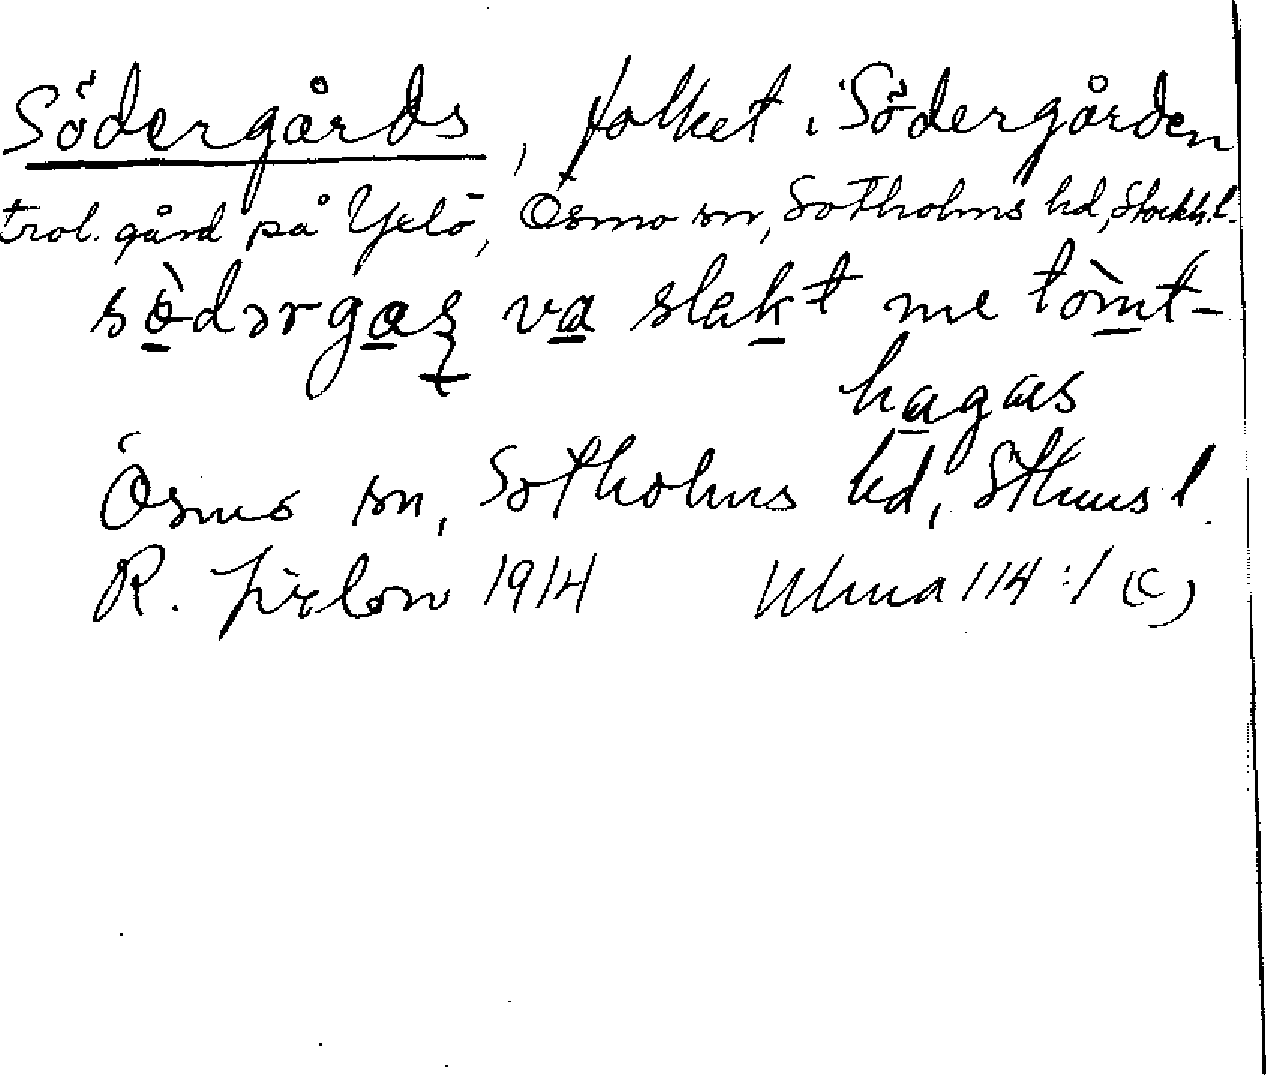 Södergårds, folket i Södergården
trol. gård på Yxlö, Ösmo sn, Sotholms hd, Stockh. l.
va slakt me tòmt-
hagas
Ösmo sn, Sotholms hd, Sthms l.
R. 1914 Ulma 114:1 (c)